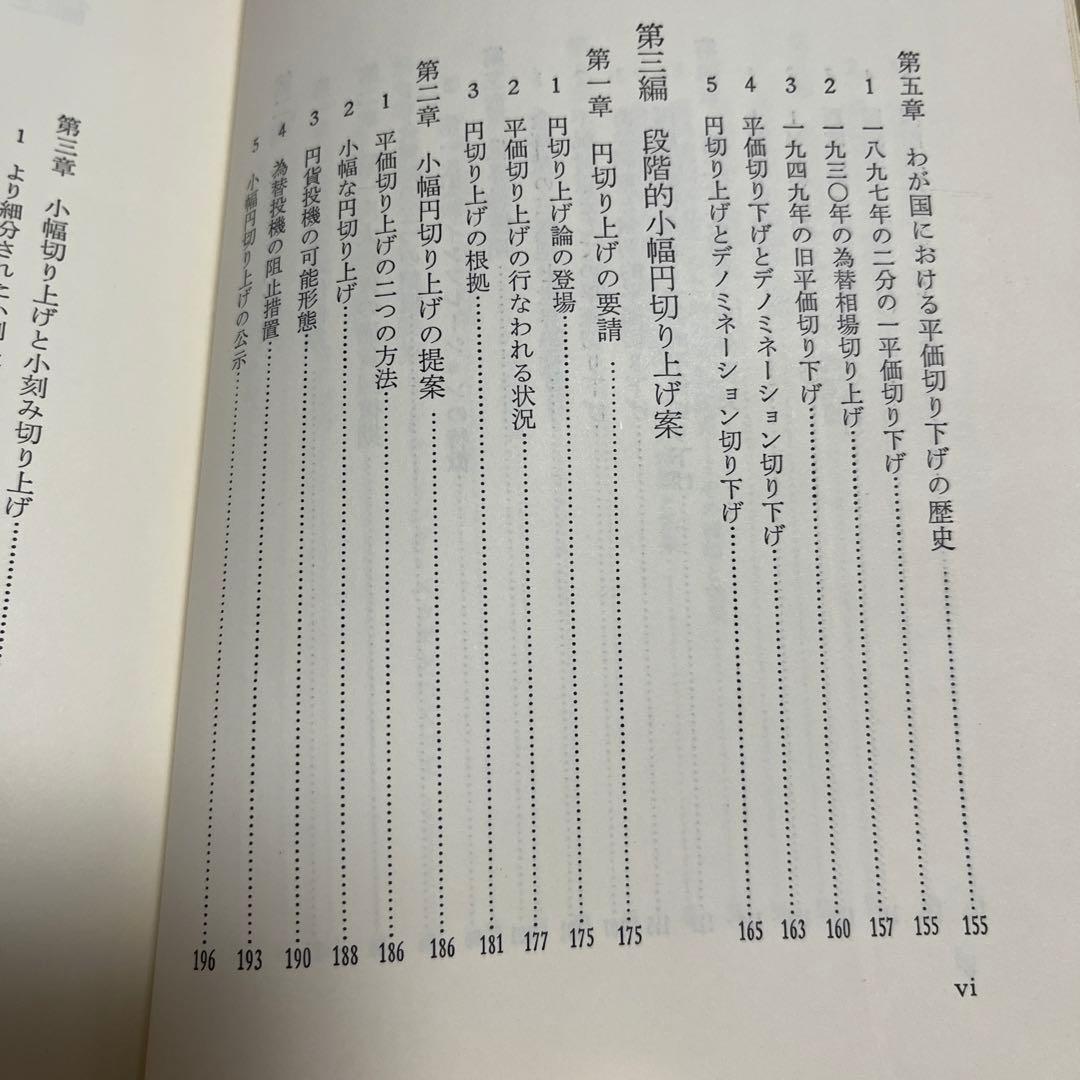 第五章　わが国における平価切り下げの歴史……155
1　一八九七年の二分の一平価切り下げ……155
2　一九三〇年の為替相場切り上げ……157
3　一九四九年の旧平価切り下げ……160
4　平価切り下げとデノミネーション切り下げ……163
5　円切り上げとデノミネーション切り下げ……165
第三編　段階的小幅円切り上げ案
第一章　円切り上げの要請……175
1　円切り上げ論の登場……175
2　平価切り上げの行なわれる状況……177
3　円切り上げの根拠……181
第二章　小幅円切り上げの提案……186
1　平価切り上げの二つの方法……186
2　小幅な円切り上げ……188
3　円貨投機の可能形態……190
4　為替投機の阻止措置……193
5　小幅円切り上げの公示……196
vi
第三章　小幅切り上げと小刻み切り上げ……
1　より細分された